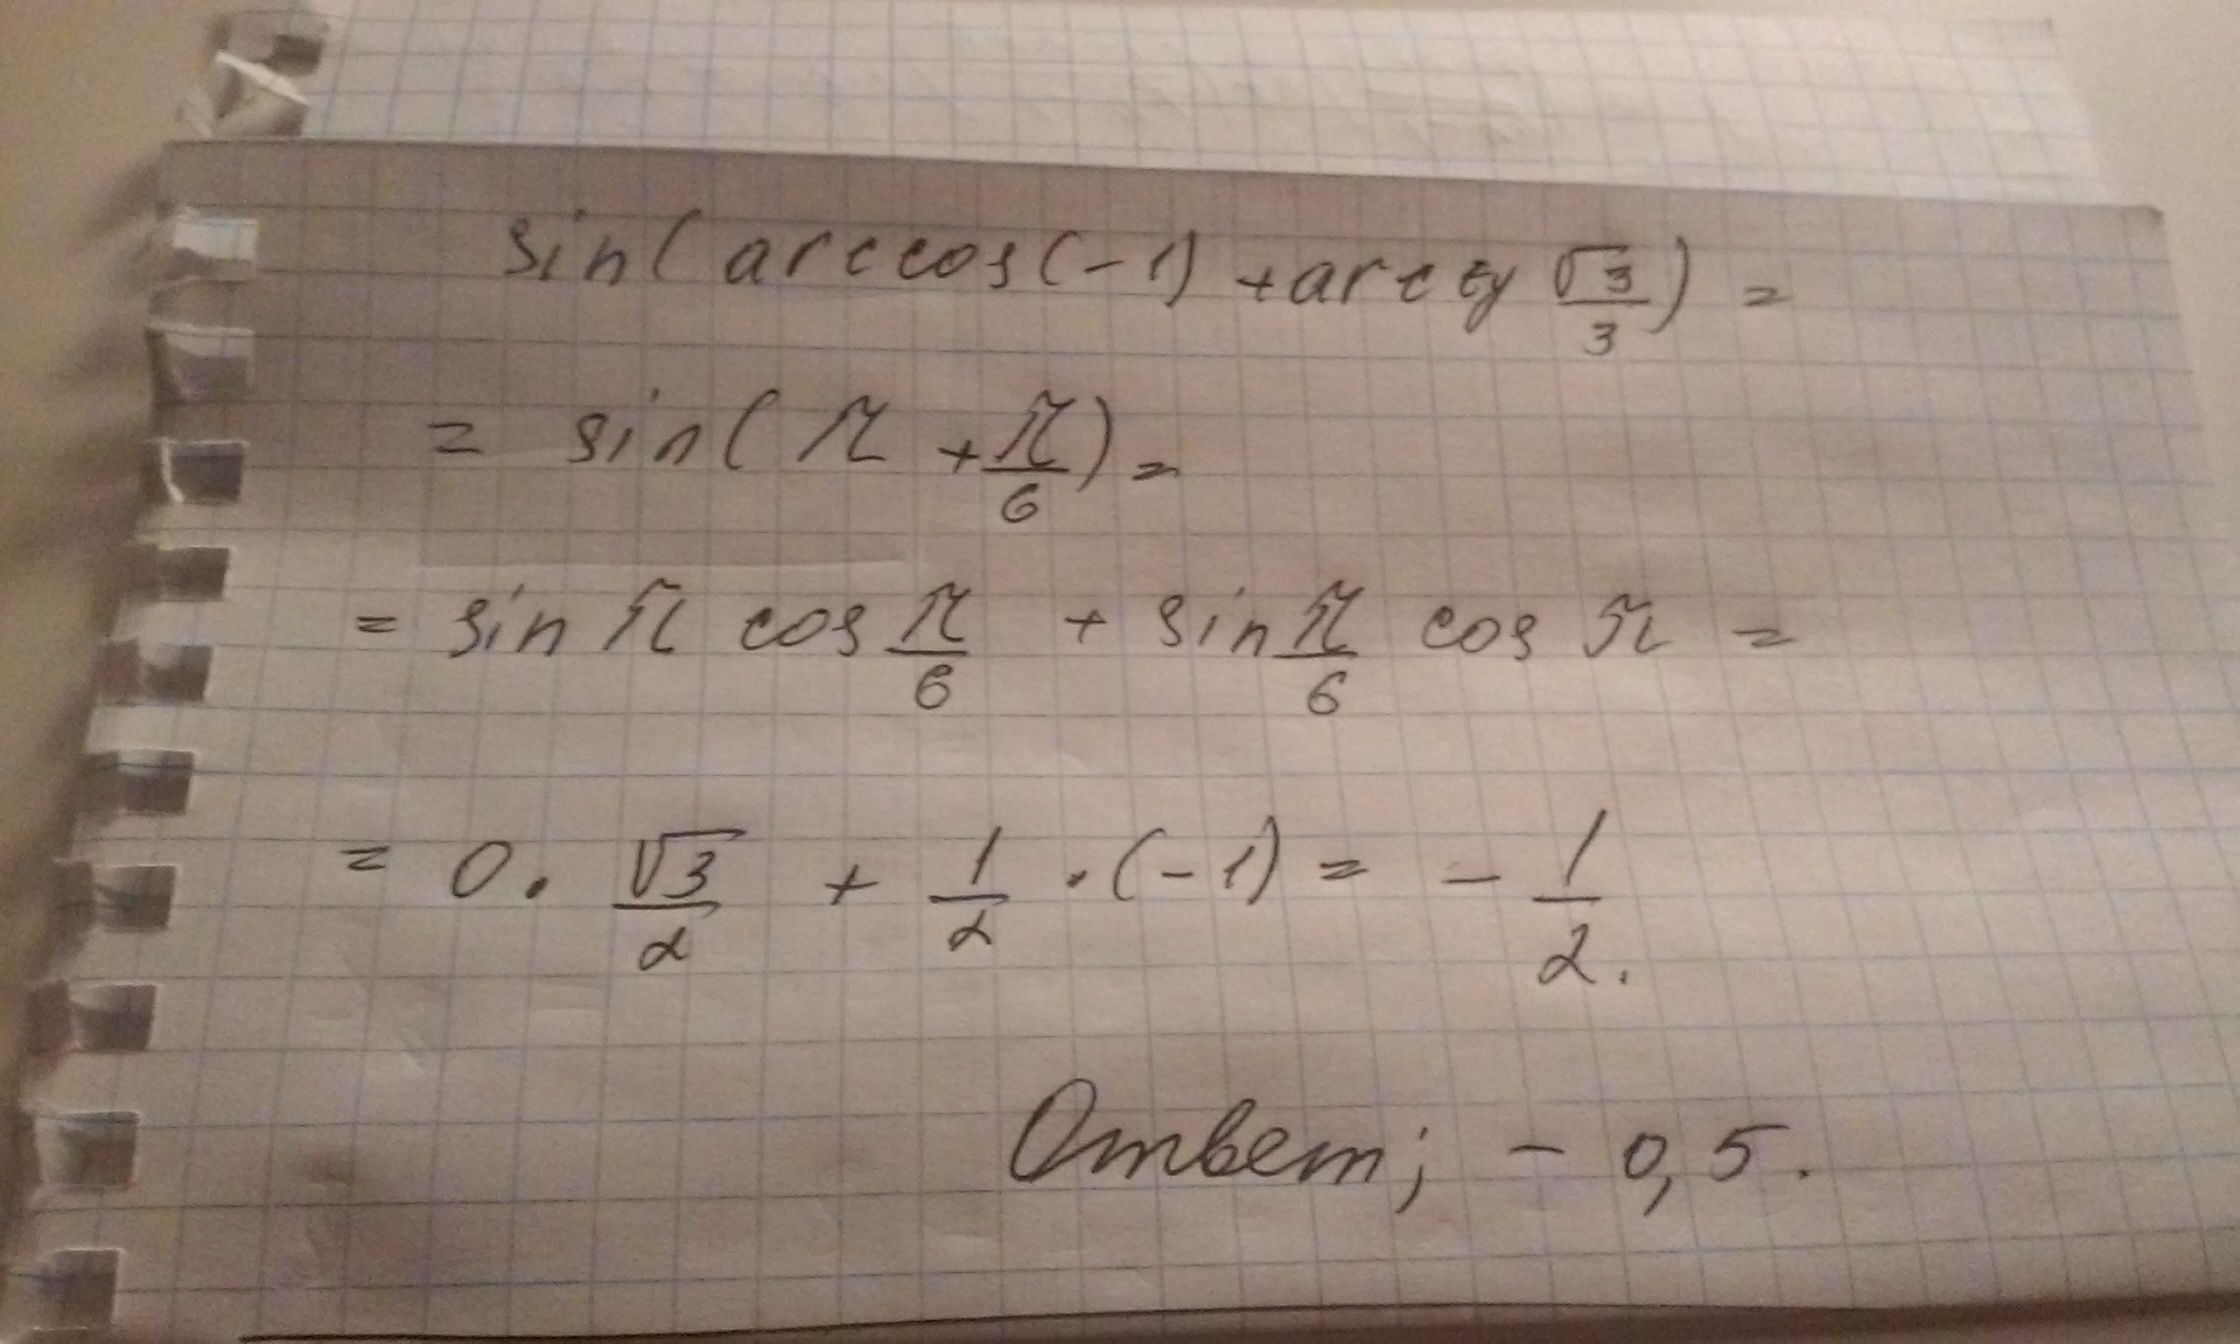 sin(arccos(-1) + arctg √3/3) =
= sin(π + π/6) =
= sin π cos π/6 + sin π/6 cos π =
= 0 · √3/2 + 1/2 · (-1) = - 1/2.
Ответ; - 0,5.